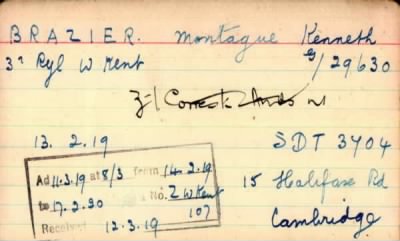 BRAZIER. Montague Kenneth
3rd Ryl W Kent G/29630
Z-1
13.2.19 SDT 3404
Ad 11.3.19 at 8/3 from 14.2.19
to 17.2.20 No. Z W Kent
107
Received 12.3.19
15 Halifax Rd
Cambridge